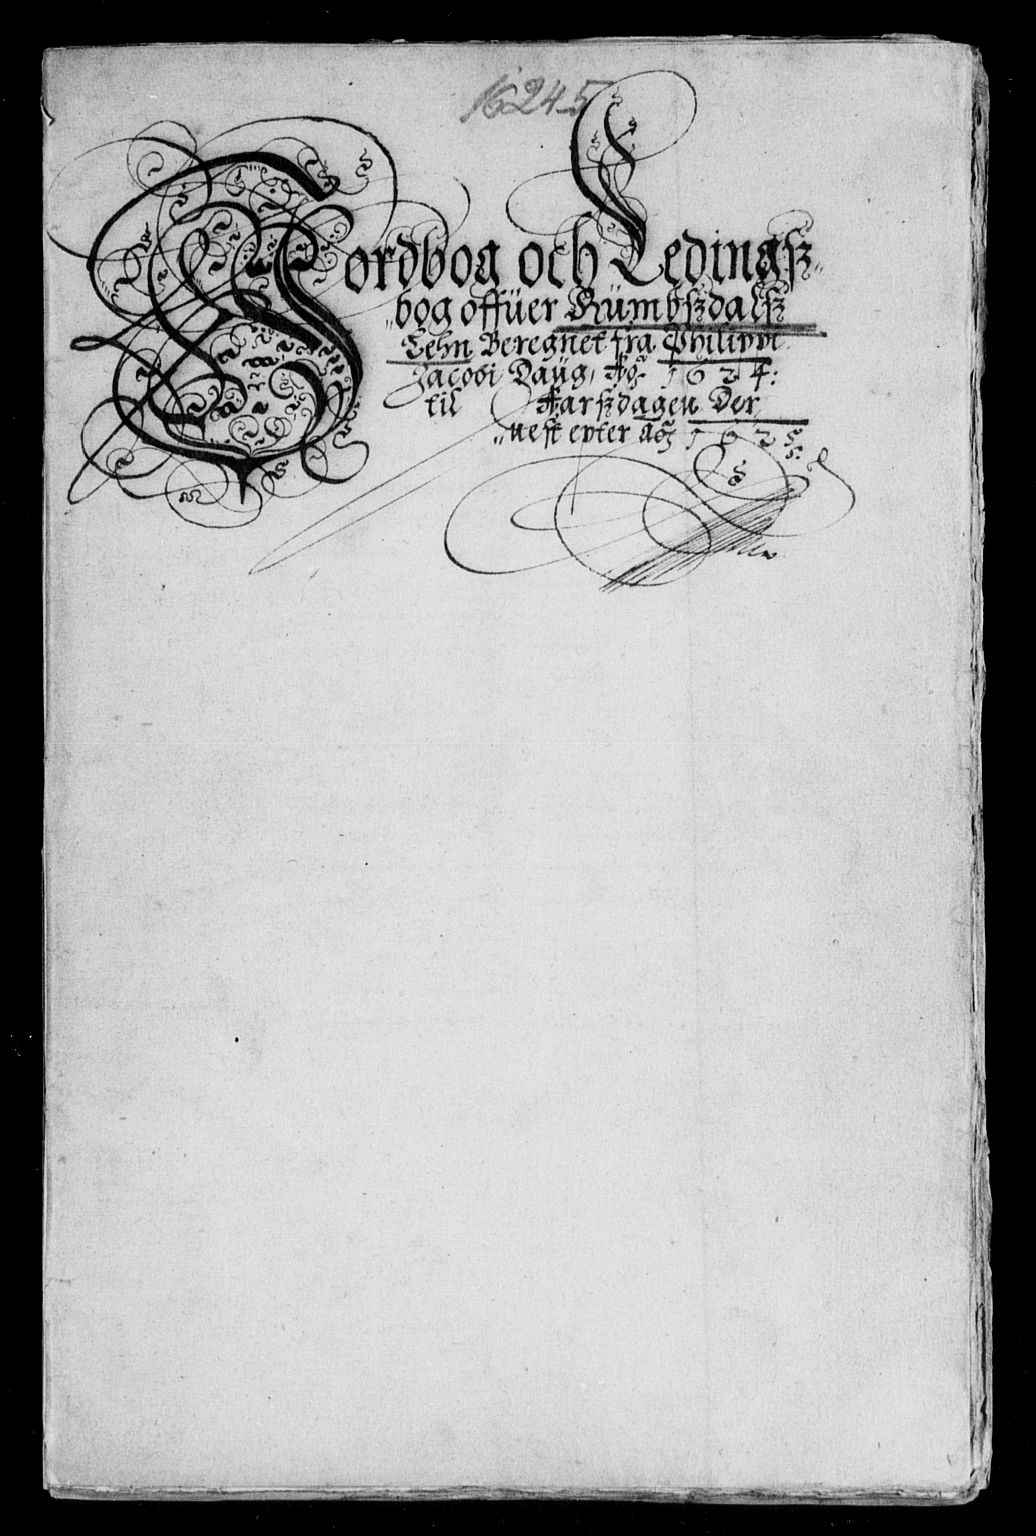 16245
Jordbog och Ledingsz
bog offüer Rümbszdalsz
Lehn Beregnet fra Philippi
Jacobi Daüg, 1624:
til Aarszdagen Der
nest epter Ao 1625